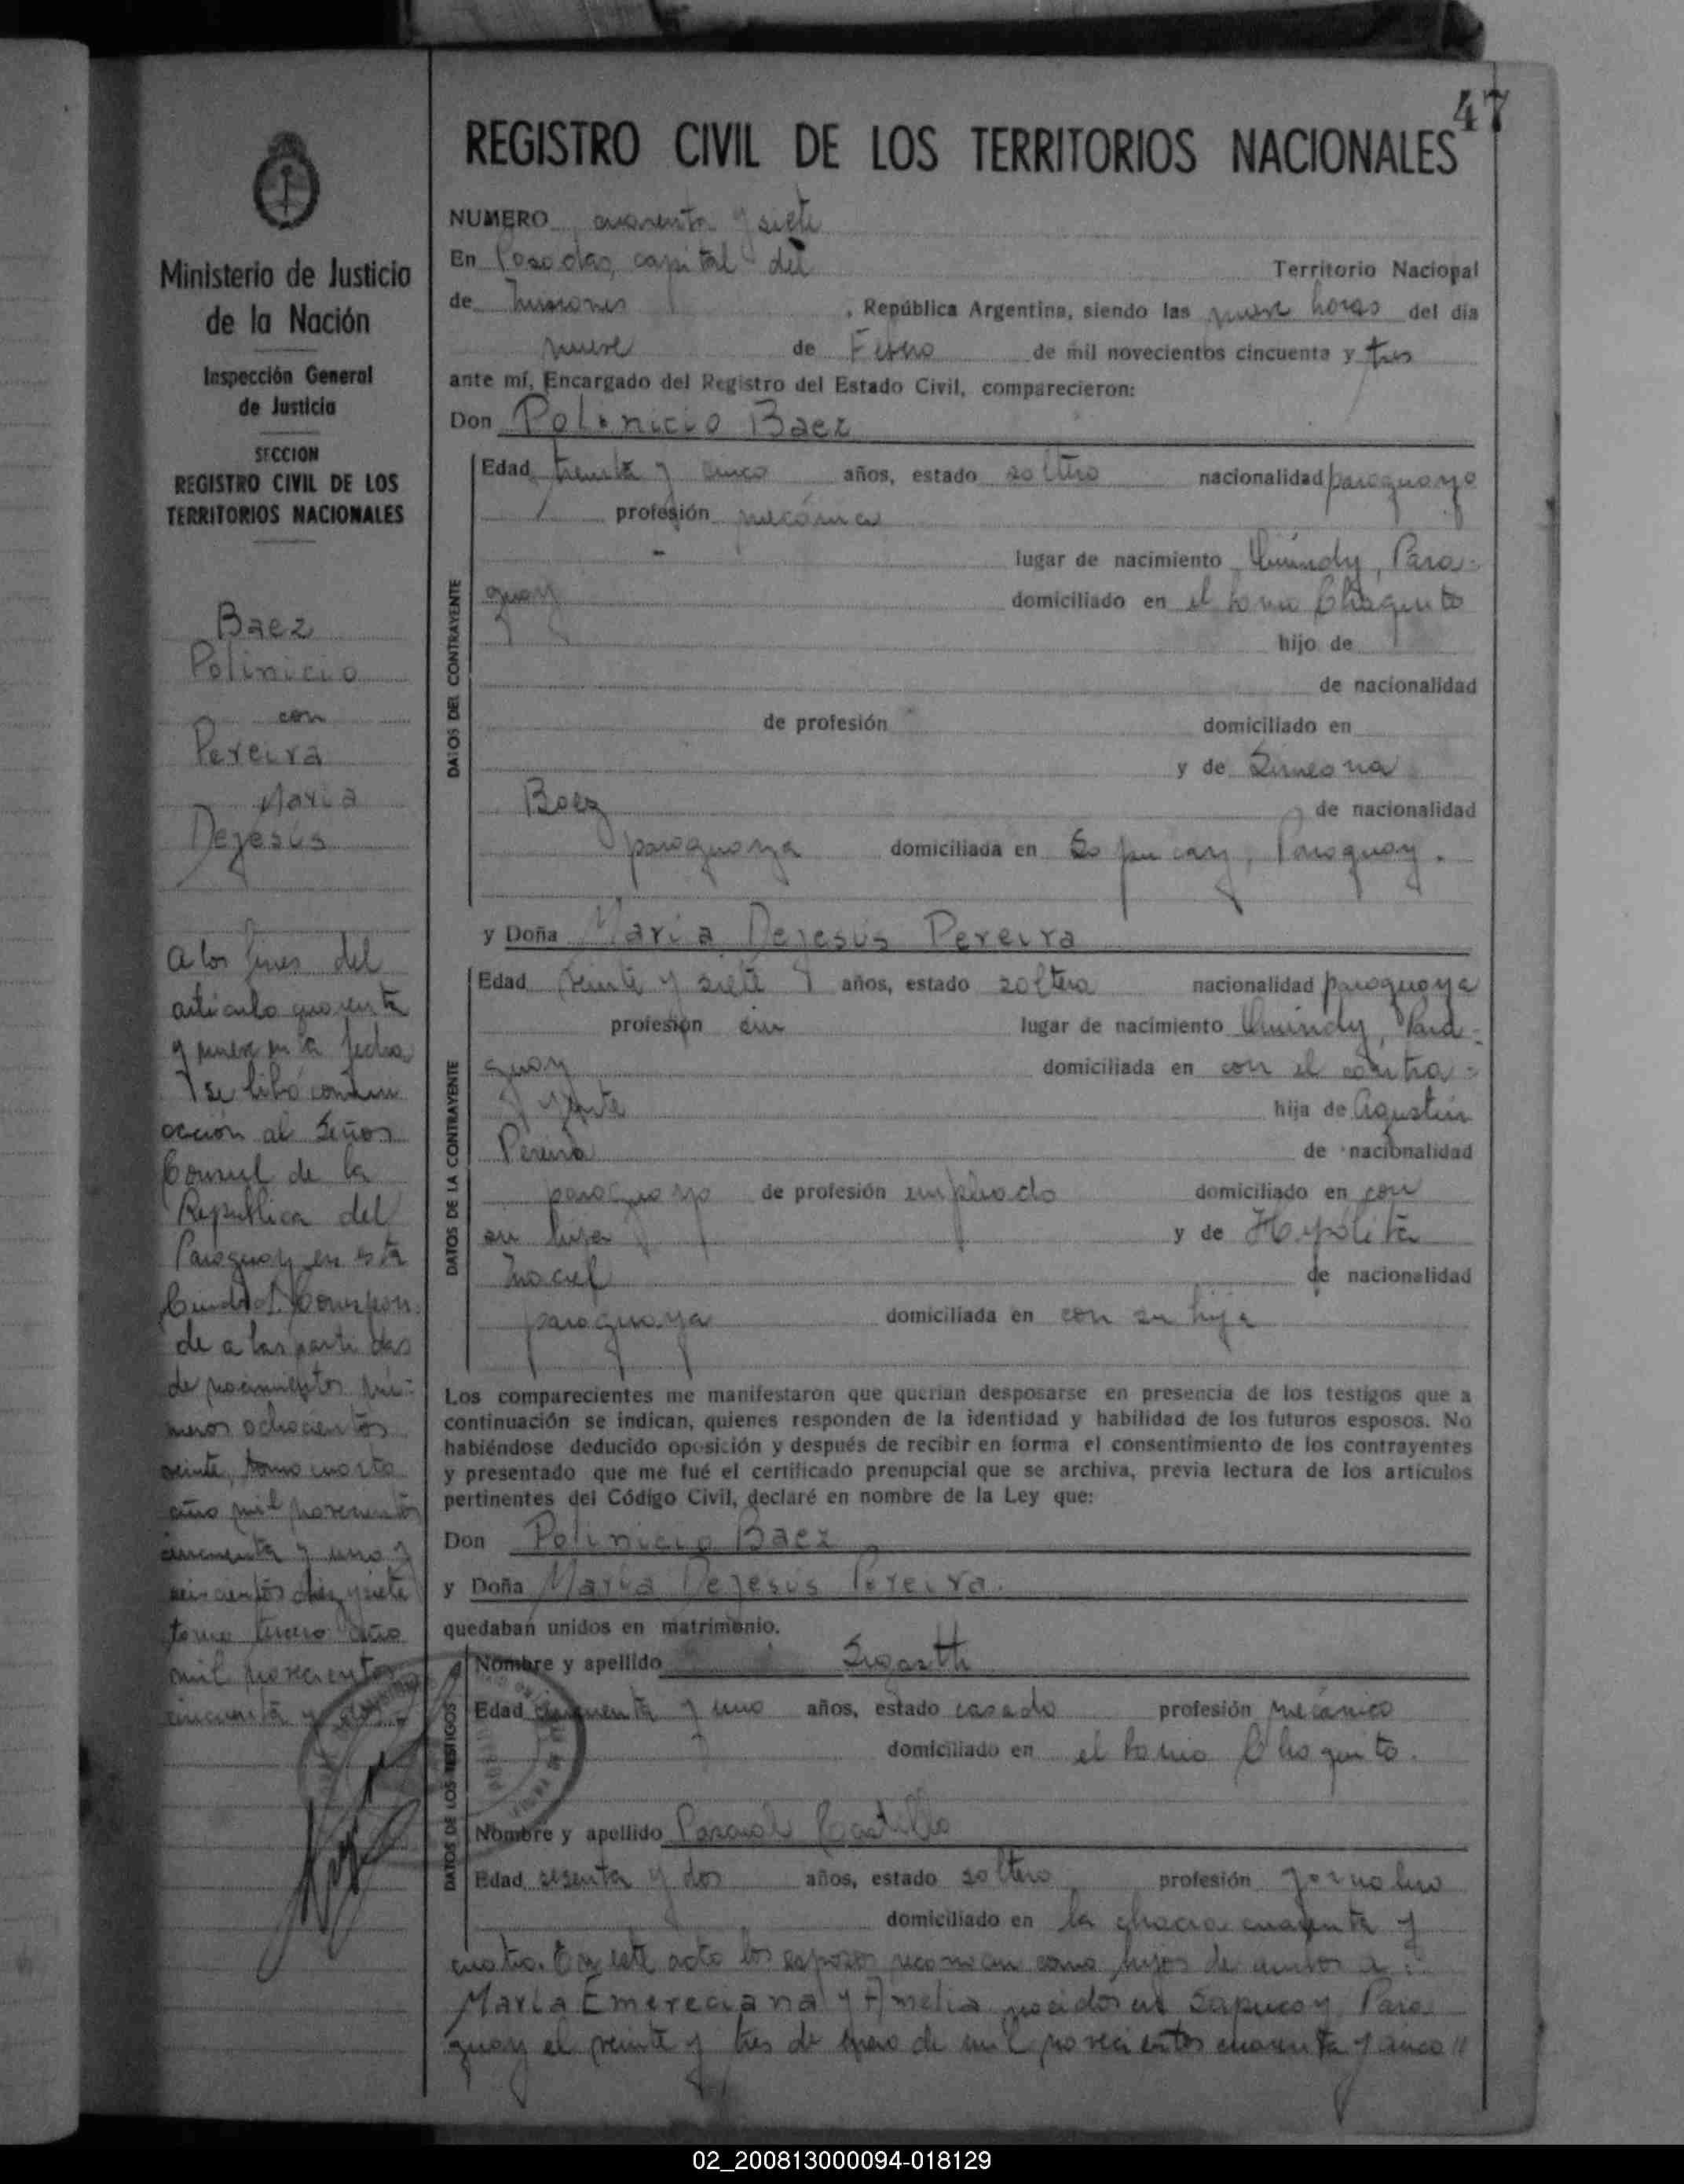 47
REGISTRO CIVIL DE LOS TERRITORIOS NACIONALES
Ministerio de Justicia
de la Nación
Inspección General
de Justicia
SECCION
REGISTRO CIVIL DE LOS
TERRITORIOS NACIONALES
Baez
Polinicio
con
Pereira
Maria
Dejesús
A los fines del
artículo cuarenta
y nueve en la fecha
se libó comuni
cación al Señor
Consul de la
Republica del
Paraguay en esta
Ciudad. Correspon
de a las partidas
de nacimientos nú-
meros ochocientos
veinte, tomo cuarto
año mil novecientos
cincuenta y uno y
seiscientos diez y siete
tomo tercero año
mil novecientos
cincuenta y dos.
NUMERO cuarenta y siete
En Posadas, capital del Territorio Nacional
de Misiones, República Argentina, siendo las nueve horas del día
nueve de Febrero de mil novecientos cincuenta y tres
ante mí, Encargado del Registro del Estado Civil, comparecieron:
Don Polinicio Baez
DATOS DEL CONTRAYENTE
Edad treinta y cinco años, estado soltero nacionalidad paraguayo
profesión mecánico
lugar de nacimiento Quindy, Para-
guay domiciliado en el barrio Chaquito
hijo de
de nacionalidad
de profesión domiciliado en
y de Simeona
Baez de nacionalidad
paraguaya domiciliada en Sapucay, Paraguay.
y Doña Maria Dejesús Pereira
DATOS DE LA CONTRAYENTE
Edad veinte y siete años, estado soltera nacionalidad paraguaya
profesión sin lugar de nacimiento Quindy, Para-
guay domiciliada en con el contra-
yente hija de Agustín
Pereira de nacionalidad
paraguayo de profesión empleado domiciliado en con
su hija y de Hipólita
Maciel de nacionalidad
paraguaya domiciliada en con su hija
Los comparecientes me manifestaron que querían desposarse en presencia de los testigos que a
continuación se indican, quienes responden de la identidad y habilidad de los futuros esposos. No
habiéndose deducido oposición y después de recibir en forma el consentimiento de los contrayentes
y presentado que me fué el certificado prenupcial que se archiva, previa lectura de los artículos
pertinentes del Código Civil, declaré en nombre de la Ley que:
Don Polinicio Baez
y Doña Maria Dejesús Pereira.
quedaban unidos en matrimonio.
DATOS DE LOS TESTIGOS
Nombre y apellido
Edad cincuenta y uno años, estado casado profesión mecánico
domiciliado en el barrio Chaquito.
Nombre y apellido Pascual Castillo
Edad sesenta y dos años, estado soltero profesión jornalero
domiciliado en la chacra cuarenta y
cuatro. En este acto los esposos reconocen como hijos de ambos a:
Maria Emereciana y Amelia nacidos en Sapucay, Para
guay el veinte y tres de de mil novecientos cuarenta y cinco //
02_200813000094-018129